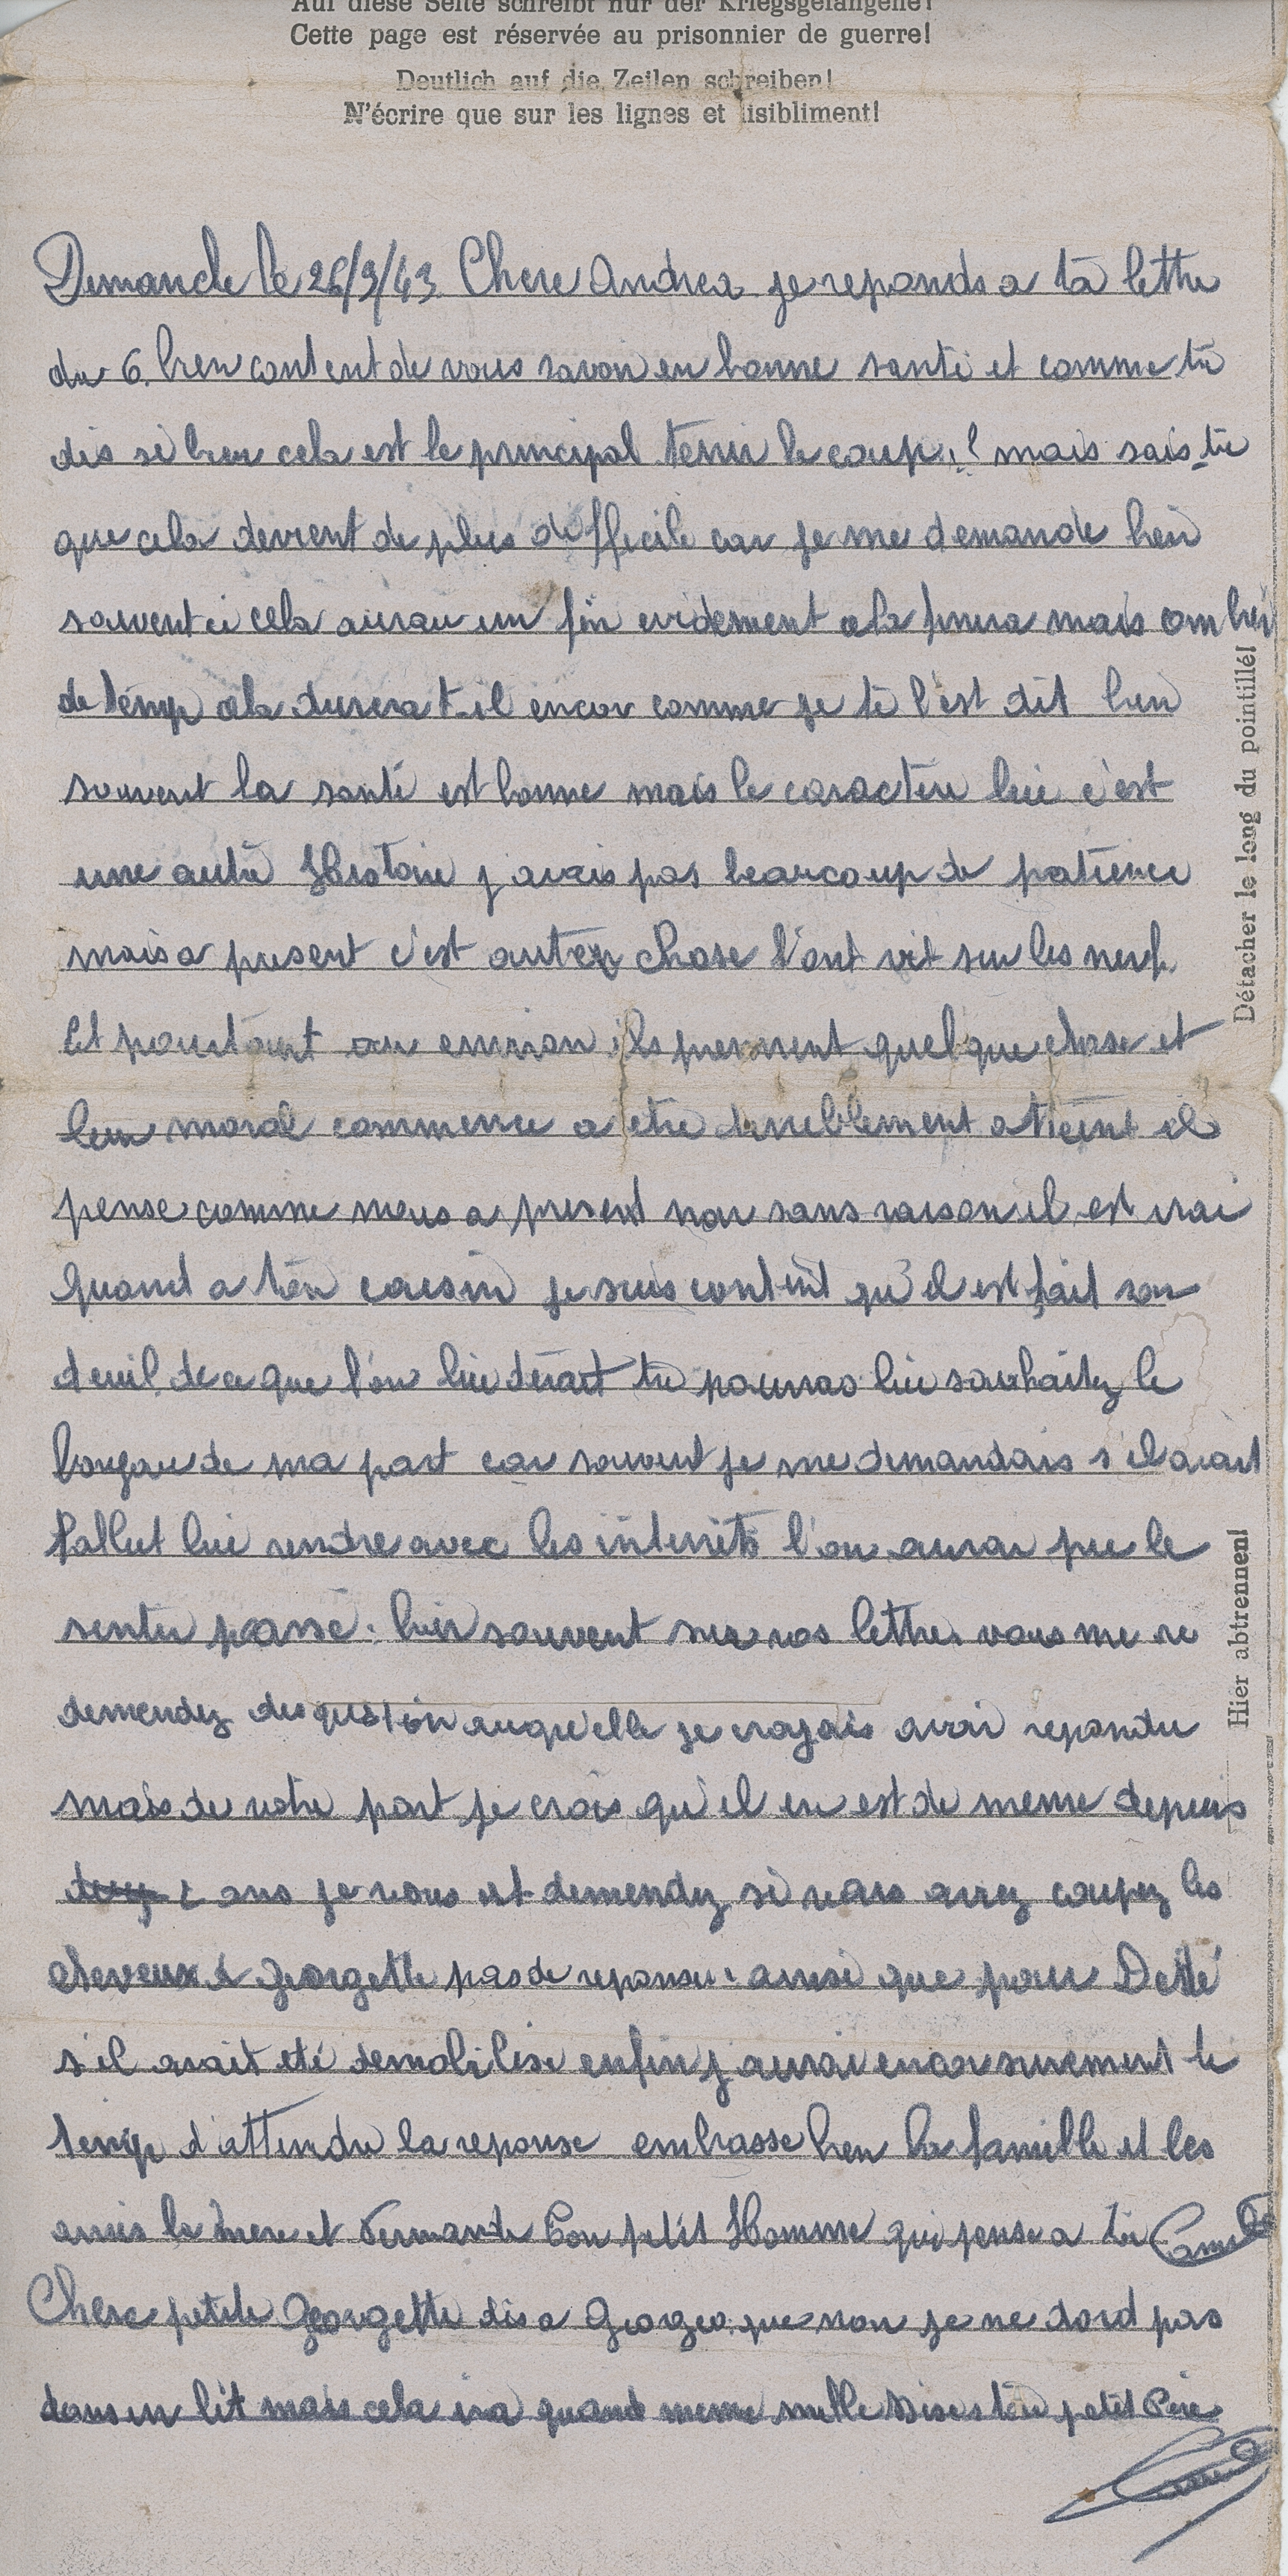 Auf diese Seite schreibt nur der Kriegsgefangene!
Cette page est réservée au prisonnier de guerre!
Deutlich auf die Zeilen schreiben!
N'écrire que sur les lignes et lisibliment!
Dimanche le 26/9/43. Chere Andrea je reponds a ta lettre
du 6. bien content de vous savoir en bonne santé et comme tu
dis si bien cela est le principal tenir le coup.! mais sais-tu
que cela devient de plus difficile car je me demande bien
souvent si cela aurau un fin evidement cela finira mais combien
de temp cela durera t-il encor comme je te l'est dit bien
souvent la santé est bonne mais le caractere lui c'est
une autre Histoire j'avais pas beaucoup de patience
mais a present c'est autre chose l'ont vit sur les nerfs.
Et pourtant ils prennent quelque chose et
leur moral commence a etre terriblement atteint il
pense comme nous a present non sans raison il est vrai
quand a ton cousin je suis content qu'il est fait son
deuil de ce que l'on lui devait tu pourras lui souhaitez le
bonjour de ma part car souvent je me demandais s'il avait
fallut lui rendre avec les interrets l'on aurai pu le
sentir passé. bien souvent sur vos lettres vous me re
demendez des question auquelle je croyais avoir repondu
mais de votre part je crois qu'il en est de meme depuis
2 ans je vous est demendez si vous avez coupez les
cheveux a Georgette pas de reponse. ainsi que pour Dédé
s'il avait eté demobilisé enfin j'aurai encor surement le
temp d'attendre la reponse embrasse bien la famille et les
amis la mere et Fernande Ton petit Homme qui pense a toi Camille
Chere petite Georgette dis a Georges que non je ne dord pas
dans un lit mais cela ira quand meme mille Bises ton petit Père
Camille
Détacher le long du pointillé!
Hier abtrennen!